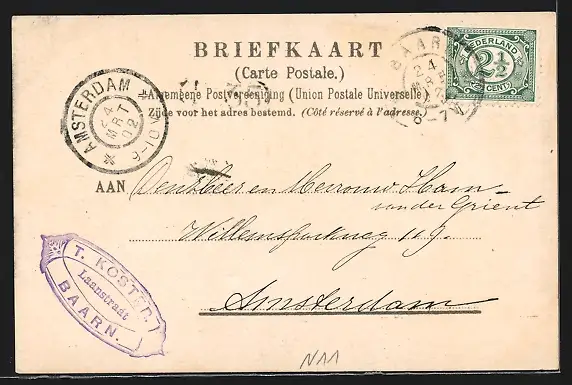 BRIEFKAART
(Carte Postale.)
Algemeene Postvereeniging (Union Postale Universelle)
Zijde voor het adres bestemd. (Côté réservé à l'adresse.)
AMSTERDAM
24
MRT
02
9-10V
BAARN
24
6-7V
NEDERLAND
2½
CENT
AAN Den Heer en Mevrouw Ham-
van der Grient
Willemsparkweg 119.
Amsterdam
T. KOSTER
Laanstraat
BAARN.
N11